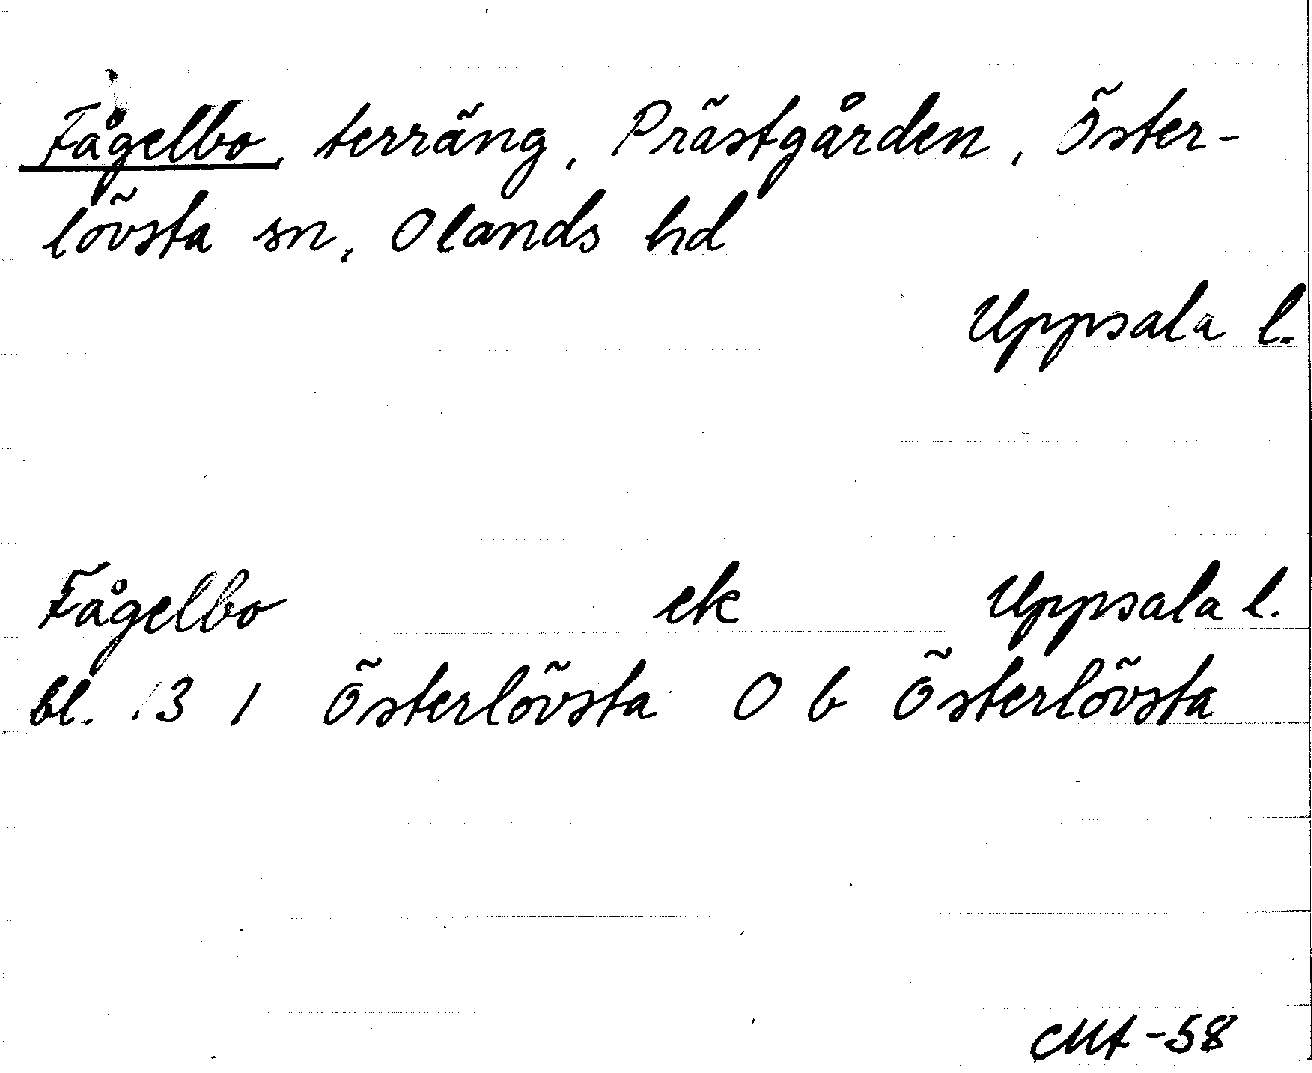 Fågelbo, terräng, Prästgården, Öster-
lövsta sn, Olands hd
Uppsala l.
Fågelbo ek Uppsala l.
bl. 13 1 Österlövsta O b Österlövsta
CMA-58